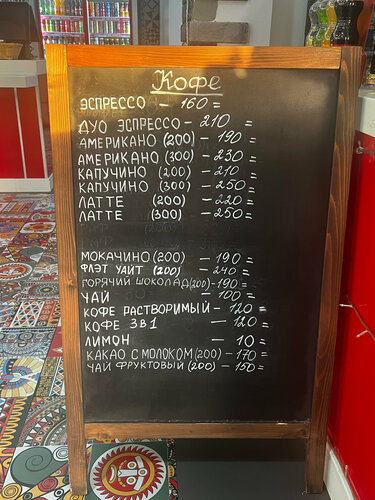 Кофе
ЭСПРЕССО - 160=
ДУО ЭСПРЕССО - 210=
АМЕРИКАНО (200) - 190=
АМЕРИКАНО (300) - 230=
КАПУЧИНО (200) - 210=
КАПУЧИНО (300) - 250=
ЛАТТЕ (200) - 220=
ЛАТТЕ (300) - 250=
МОКАЧИНО (200) - 190=
ФЛЭТ УАЙТ (200) - 240=
ГОРЯЧИЙ ШОКОЛАД (200) - 190=
ЧАЙ - 100=
КОФЕ РАСТВОРИМЫЙ - 120=
КОФЕ 3В1 - 120=
ЛИМОН - 10=
КАКАО С МОЛОКОМ (200) - 170=
ЧАЙ ФРУКТОВЫЙ (200) - 150=